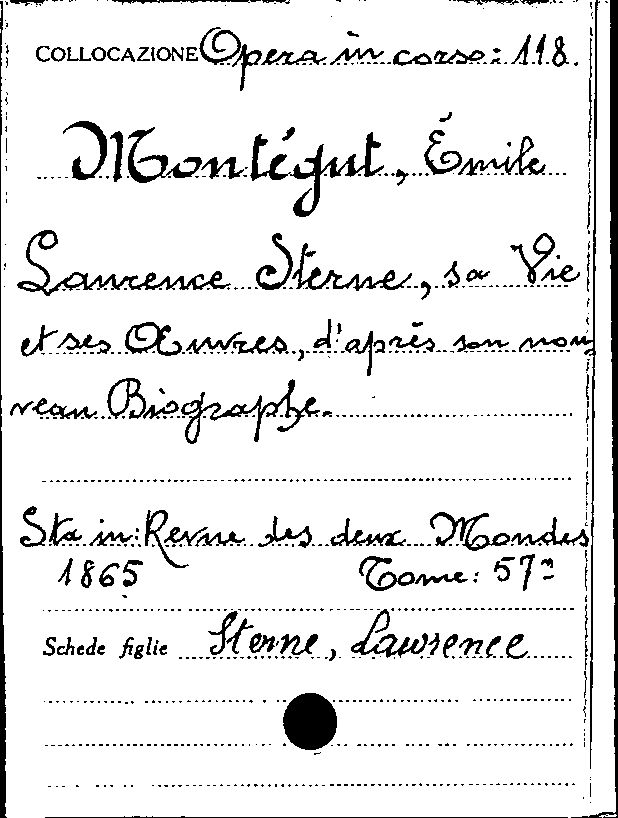 COLLOCAZIONE Opera in corso: 118.
Montégut, Émile
Laurence Sterne, sa Vie
et ses Œuvres, d'après son nou-
veau Biographe.
Sta in: Revue des deux Mondes
1865 Tome: 57m
Schede figlie Sterne, Lawrence